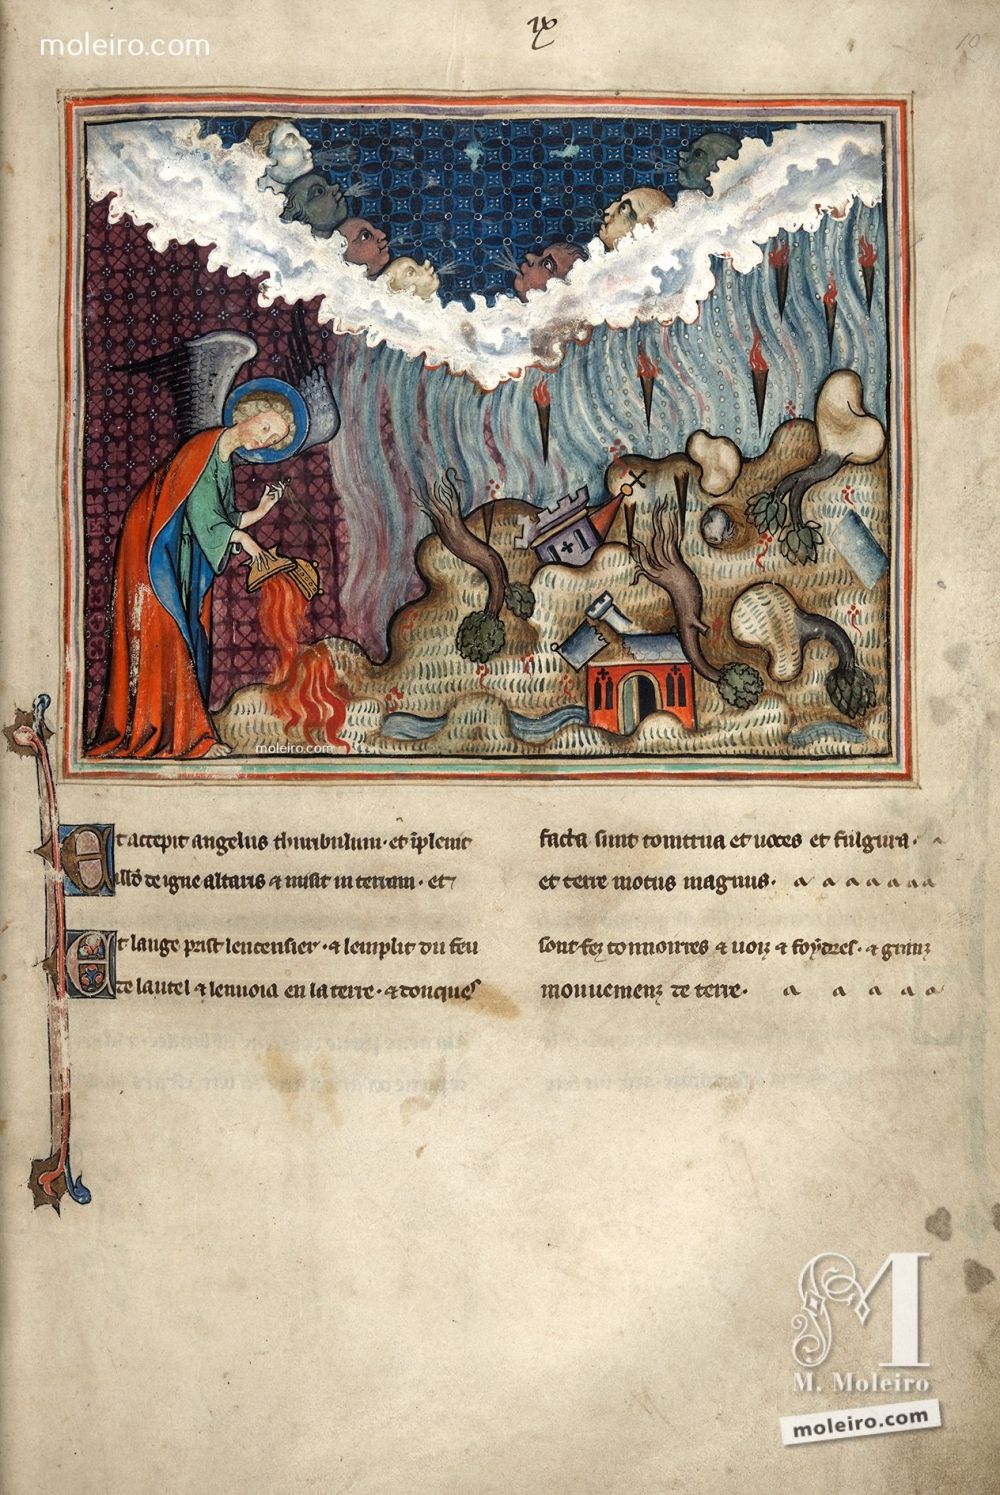 moleiro.com
ix
10
moleiro.com
Et accepit angelus thuribulum · et īplevit
illḋ de igne altaris ⁊ misit in terram · et
facta sunt tonitrua et voces et fulgura ·
et terre motus magnus ·
Et lange prist lencensier · ⁊ lemplit du feu
de lautel ⁊ lenvoia en la terre · ⁊ donques
sont fez tonnoirres ⁊ voiz ⁊ foydres · ⁊ granz
mouvemenz de terre ·
M
M. Moleiro
moleiro.com